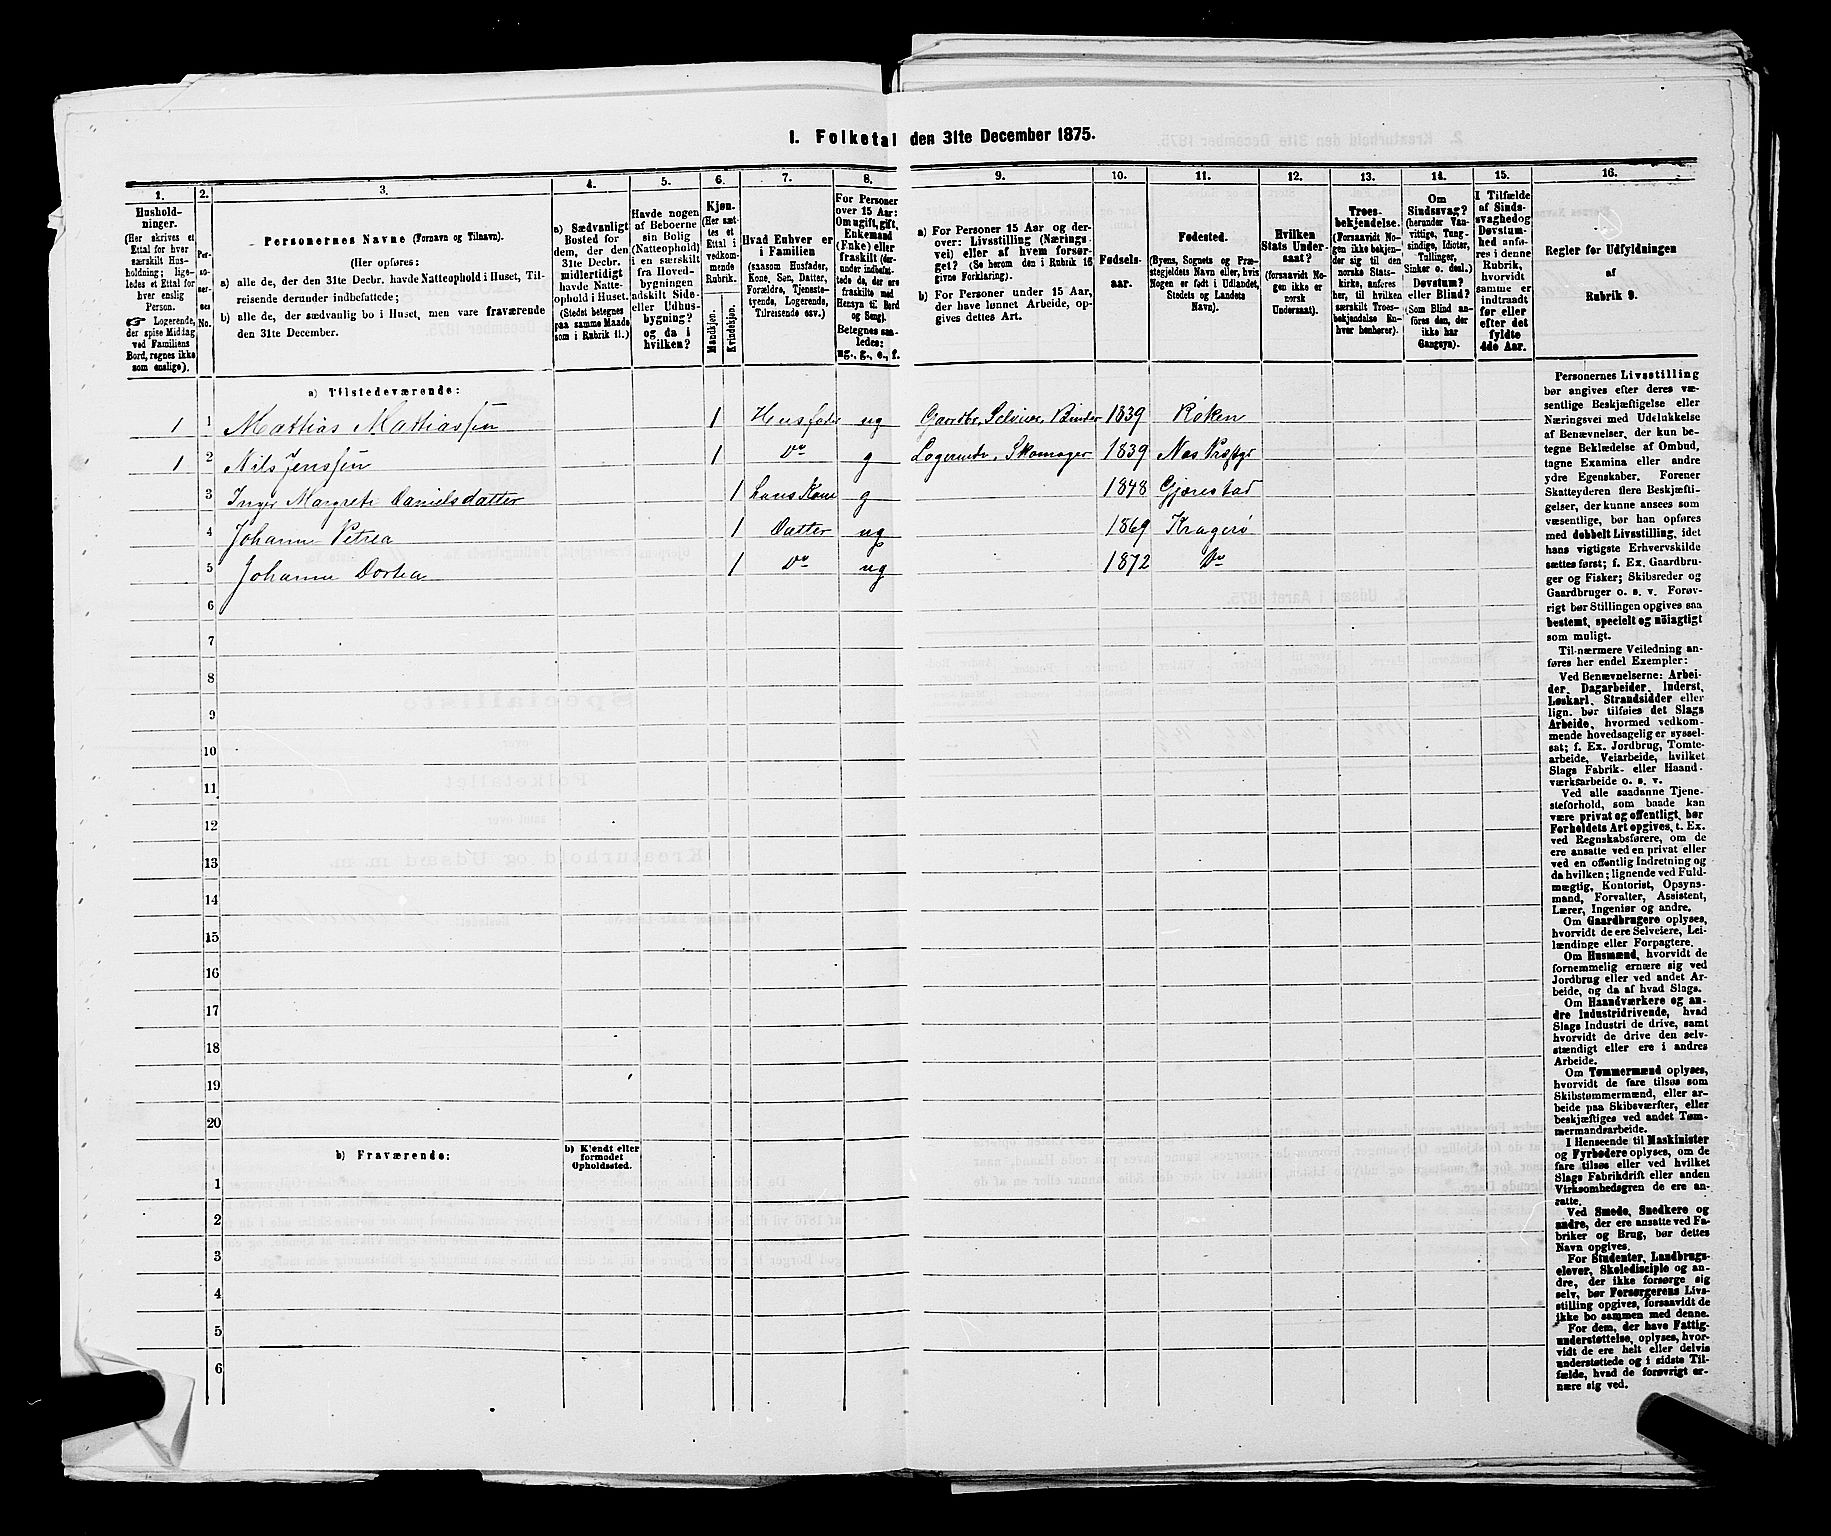 1. Folketal den 31te December 1875.
1. 2. 3. 4. 5. 6. 7. 8. 9. 10. 11. 12. 13. 14. 15. 16.
Hushold-
ninger.
(Her skrives et
Ettal for hver
særskilt Hus-
holdning; lige-
ledes et Ettal for
hver enslig
Person.
☞ Logerende,
der spise Middag
ved Familiens
Bord, regnes ikke
som enslige).
Per-
so-
ner-
nes
No.
Personernes Navne (Fornavn og Tilnavn).
(Her opføres:
a) alle de, der den 31te Decbr. havde Natteophold i Huset, Til-
reisende derunder indbefattede;
b) alle de, der sædvanlig bo i Huset, men vare fraværende
den 31te December.
a) Sædvanligt
Bosted for
dem, der den
31te Decbr.
midlertidigt
havde Natte-
ophold i Huset.
(Stedet betegnes
paa samme Maade
som i Rubrik 11.)
Havde nogen
af Beboerne
sin Bolig
(Natteophold)
i en særskilt
fra Hoved-
bygningen
adskilt Side-
eller Udhus-
bygning?
og da i
hvilken?
Kjøn.
(Her sæt-
tes et
Ettal i
vedkom-
mende
Rubrik.
Mandkjøn.
Kvindekjøn.
Hvad Enhver er
i Familien
(saasom Husfader,
Kone, Søn, Datter,
Forældre, Tjeneste-
tyende, Logerende,
Tilreisende osv.)
For Personer
over 15 Aar:
Om ugift, gift,
Enkemand
(Enke) eller
fraskilt (der-
under indbefat-
tede de, der ere
fraskilte med
Hensyn til Bord
og Seng).
Betegnes saa-
ledes:
ug., g., e., f.
a) For Personer 15 Aar og der-
over: Livsstilling (Nærings-
vei) eller af hvem forsør-
get? (Se herom den i Rubrik 16
givne Forklaring).
b) For Personer under 15 Aar,
der have lønnet Arbeide, op-
gives dettes Art.
Fødsels-
aar.
Fødested.
(Byens, Sognets og Præ-
stegjeldets Navn eller, hvis
Nogen er født i Udlandet,
Stedets og Landets
Navn).
Hvilken
Stats Under-
saat?
(forsaavidt No-
gen ikke er
norsk
Undersaat).
Troes-
bekjendelse.
(Forsaavidt No-
gen ikke bekjen-
der sig til den
norske Stats-
kirke, anføres
her, til hvilken
særskilt Troes-
bekjendelse En-
hver henhører).
Om
Sindssvag?
(herunder Van-
vittige, Tung-
sindige, Idioter,
Tullinger,
Sinker o. desl.)
Døvstum?
eller Blind?
(Som Blind an-
føres den, der
ikke har
Gangsyn).
I Tilfælde
af Sinds-
svaghed og
Døvstum-
hed anfø-
res i denne
Rubrik,
hvorvidt
samme er
indtraadt
før eller
efter det
fyldte
4de Aar.
Regler for Udfyldningen
af
Rubrik 9.
a) Tilstedeværende:
1 1 Mattias Mattiassen 1 Husfader ug Gaardbr. Selveier, Binder 1839 Røken
1 2 Nils Jenssen 1 Do g Logerende, Skomager 1839 Næs Præstgj
3 Inger Margrete Danielsdatter 1 hans Kone g 1848 Gjærestad
4 Johanne Petrea 1 Datter ug 1869 Kragerø
5 Johanne Dortea 1 Do ug 1872 Do
6
7
8
9
10
11
12
13
14
15
16
17
18
19
20
b) Fraværende:
b) Kjendt eller
formodet
Opholdssted.
1
2
3
4
5
6
Personernes Livsstilling
bør angives efter deres væ-
sentlige Beskjæftigelse eller
Næringsvei med Udelukkelse
af Benævnelser, der kun be-
tegne Beklædelse af Ombud,
tagne Examina eller andre
ydre Egenskaber. Forener
Skatteyderen flere Beskjæfti-
gelser, der kunne ansees som
væsentlige, bør han opføres
med dobbelt Livsstilling, idet
hans vigtigste Erhvervskilde
sættes først; f. Ex. Gaardbru-
ger og Fisker; Skibsreder og
Gaardbruger o. s. v. Forøv-
rigt bør Stillingen opgives saa
bestemt, specielt og nøiagtigt
som muligt.
Til nærmere Veiledning an-
føres her endel Exempler:
Ved Benævnelserne: Arbei-
der, Dagarbeider, Inderst,
Løskarl, Strandsidder eller
lign. bør tilføies det Slags
Arbeide, hvormed vedkom-
mende hovedsagelig er syssel-
sat; f. Ex. Jordbrug, Tomte-
arbeide, Veiarbeide, hvilket
Slags Fabrik- eller Haand-
værksarbeide o. s. v.
Ved alle saadanne Tjene-
steforhold, som baade kan
være privat og offentligt, bør
Forholdets Art opgives, t. Ex.
ved Regnskabsførere, om de
ere ansatte ved en privat eller
ved en offentlig Indretning og
da hvilken; lignende ved Fuld-
mægtig, Kontorist, Opsyns-
mand, Forvalter, Assistent,
Lærer, Ingeniør og andre.
Om Gaardbrugere oplyses,
hvorvidt de ere Selveiere, Lei-
lændinge eller Forpagtere.
Om Husmænd, hvorvidt de
fornemmelig ernære sig ved
Jordbrug eller ved andet Ar-
beide, og da af hvad Slags.
Om Haandværkere og an-
dre Industridrivende, hvad
Slags Industri de drive, samt
hvorvidt de drive den selv-
stændigt eller ere i andres
Arbeide.
Om Tømmermænd oplyses,
hvorvidt de fare tilsøs som
Skibstømmermænd, eller ar-
beide paa Skibsværfter, eller
beskjæftiges ved andet Tøm-
mermandsarbeide.
I Henseende til Maskinister
og Fyrbødere oplyses, om de
fare tilsøs eller ved hvilket
Slags Fabrikdrift eller anden
Virksomhedsgren de ere an-
satte.
Ved Smede, Snedkere og
andre, der ere ansatte ved Fa-
briker og Brug, bør dettes
Navn opgives.
For Studenter, Landbrugs-
elever, Skoledisciple og an-
dre, der ikke forsørge sig
selv, bør Forsørgerens Livs-
stilling opgives, forsaavidt de
ikke bo sammen med denne.
For dem, der have Fattig-
understøttelse, oplyses, hvor-
vidt de ere helt eller delvis
understøttede og i sidste Til-
fælde, hvad de forøvrigt er-
nære sig ved.